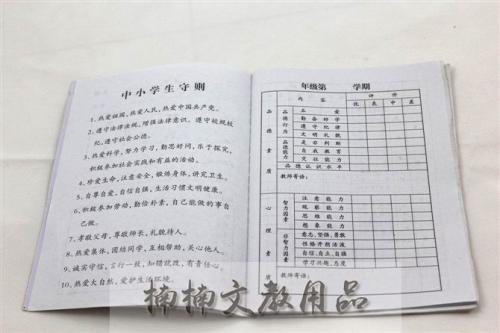 中小学生守则
1、热爱祖国，热爱人民，热爱中国共产党。
2、遵守法律法规，增强法律意识。遵守校规校
纪，遵守社会公德。
3、热爱科学，努力学习，勤思好问，乐于探究，
积极参加社会实践和有益的活动。
4、珍爱生命，注意安全，锻炼身体，讲究卫生。
5、自尊自爱，自信自强，生活习惯文明健康。
6、积极参加劳动，勤俭朴素，自己能做的事自
己做。
7、孝敬父母，尊敬师长，礼貌待人。
8、热爱集体，团结同学，互相帮助，关心他人。
9、诚实守信，言行一致，知错就改，有责任心。
10、热爱大自然，爱护生活环境。
年级第 学期
内容 评价
优 良 中 差
品德素质
品德行为
勤奋好学
遵守纪律
文明礼貌
品德能力
是非判断
自我教育
交往能力
品德认识水平
教师寄语：
心理素质
智力因素
注意能力
观察能力
思维能力
想象能力
非智力因素
意志，坚强，勇敢
性格开朗活泼
自信，自立，自强
学习兴趣，态度
教师寄语：
楠楠文教用品